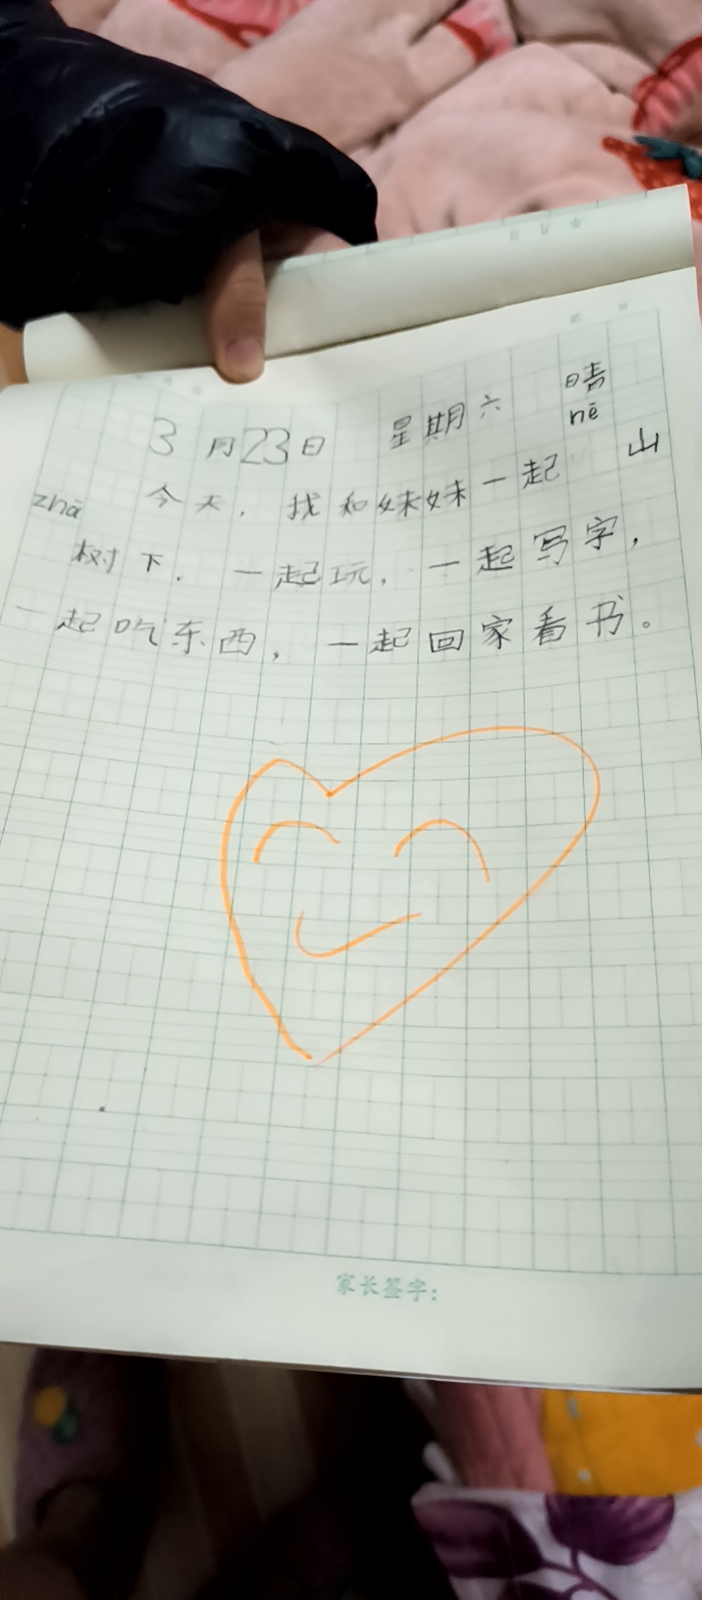 3月23日 星期六 晴
今天，找和妹妹一起 nē 山
zhā 树下，一起玩，一起写字，
一起吃东西，一起回家看书。
家长签字：